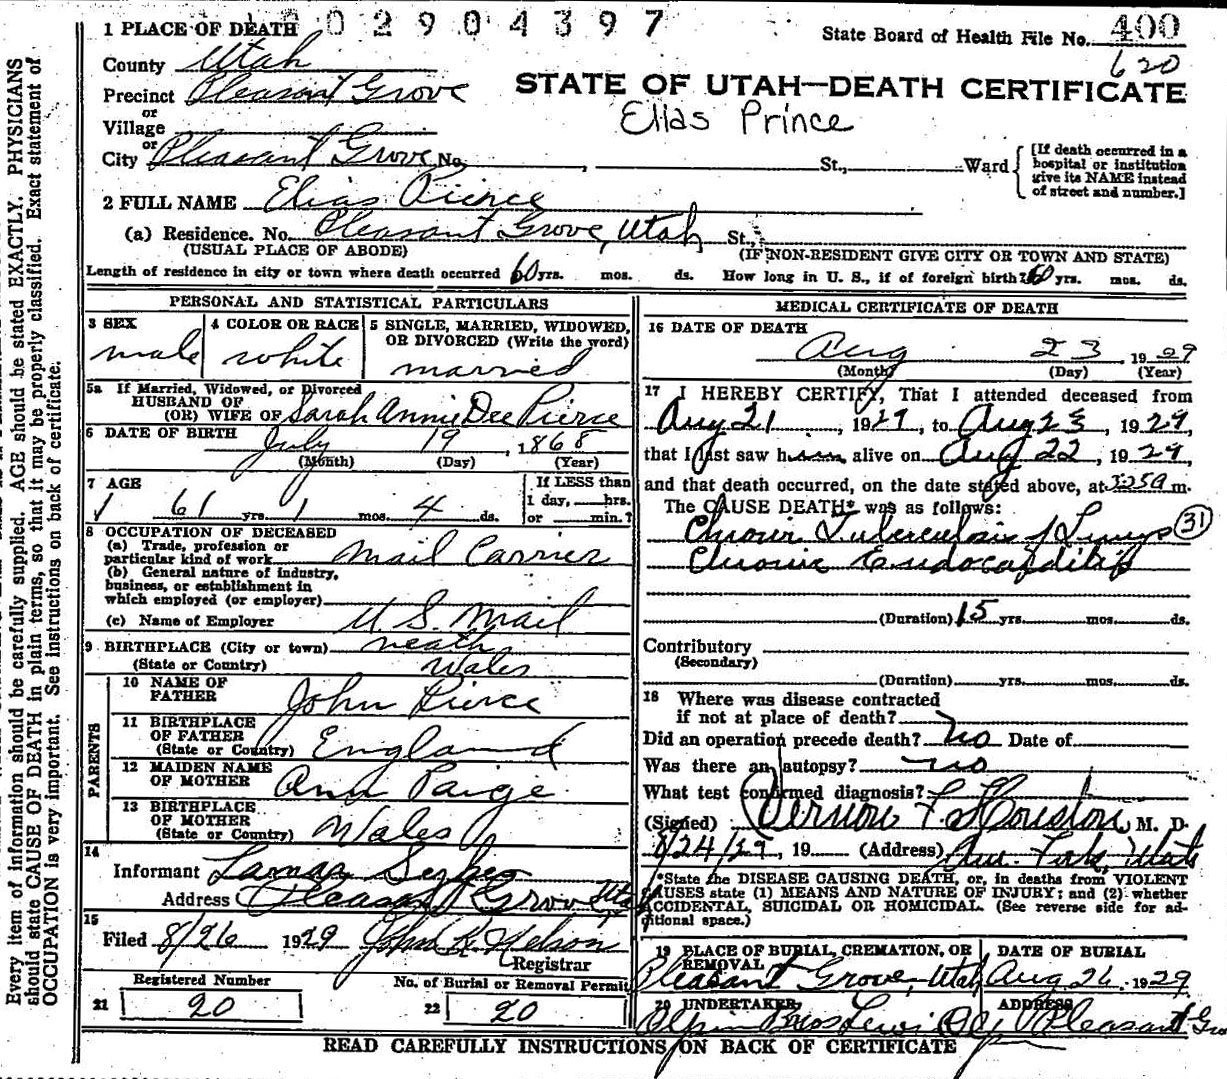 1 PLACE OF DEATH 0 2 9 0 4 3 9 7
State Board of Health File No. 400
620
County Utah
Precinct Pleasant Grove
STATE OF UTAH—DEATH CERTIFICATE
or
Village
Elias Prince
or
City Pleasant Grove No. , St., Ward
[If death occurred in a
hospital or institution
give its NAME instead
of street and number.]
2 FULL NAME Elias Pierce
(a) Residence. No. Pleasant Grove, Utah St.,
(USUAL PLACE OF ABODE) (IF NON-RESIDENT GIVE CITY OR TOWN AND STATE)
Length of residence in city or town where death occurred 60 yrs. mos. ds. How long in U. S., if of foreign birth? 60 yrs. mos. ds.
PERSONAL AND STATISTICAL PARTICULARS
3 SEX 4 COLOR OR RACE 5 SINGLE, MARRIED, WIDOWED,
OR DIVORCED (Write the word)
male white married
5a If Married, Widowed, or Divorced
HUSBAND OF
(OR) WIFE OF Sarah Annie Dee Pierce
6 DATE OF BIRTH July 19, 1868
(Month) (Day) (Year)
7 AGE If LESS than
1 day, hrs.
61 yrs. 1 mos. 4 ds. or min.?
8 OCCUPATION OF DECEASED
(a) Trade, profession or
particular kind of work Mail Carrier
(b) General nature of industry,
business, or establishment in
which employed (or employer)
(c) Name of Employer U S. Mail
9 BIRTHPLACE (City or town) neath
(State or Country) Wales
PARENTS
10 NAME OF
FATHER John Pierce
11 BIRTHPLACE
OF FATHER
(State or Country) England
12 MAIDEN NAME
OF MOTHER Ann Paige
13 BIRTHPLACE
OF MOTHER
(State or Country) Wales
14
Informant
Address Pleasant Grove Utah
15
Filed 8/26 1929 John K. Nelson
Registrar
Registered Number No. of Burial or Removal Permit
21 20 22 20
MEDICAL CERTIFICATE OF DEATH
16 DATE OF DEATH
Aug 23 1929
(Month) (Day) (Year)
17 I HEREBY CERTIFY, That I attended deceased from
Aug 21, 1929, to Aug 23, 1929,
that I last saw him alive on Aug 22, 1929,
and that death occurred, on the date stated above, at 325a m.
The CAUSE DEATH* was as follows:
Chronic Tuberculosis of Lungs 31
Chronic Endocarditis
(Duration) 15 yrs. mos. ds.
Contributory
(Secondary)
(Duration) yrs. mos. ds.
18 Where was disease contracted
if not at place of death?
Did an operation precede death? no Date of
Was there an autopsy? no
What test confirmed diagnosis?
(Signed) Vernon F Houston, M. D.
8/24/29, 19 (Address) Am. Fork, Utah
*State the DISEASE CAUSING DEATH, or, in deaths from VIOLENT
CAUSES state (1) MEANS AND NATURE OF INJURY; and (2) whether
ACCIDENTAL, SUICIDAL OR HOMICIDAL. (See reverse side for ad-
ditional space.)
19 PLACE OF BURIAL, CREMATION, OR
REMOVAL DATE OF BURIAL
Pleasant Grove, Utah Aug 26, 1929
20 UNDERTAKER, ADDRESS
Pleasant Gro
READ CAREFULLY INSTRUCTIONS ON BACK OF CERTIFICATE
Every item of information should be carefully supplied. AGE should be stated EXACTLY. PHYSICIANS
should state CAUSE OF DEATH in plain terms, so that it may be properly classified. Exact statement of
OCCUPATION is very important. See instructions on back of certificate.